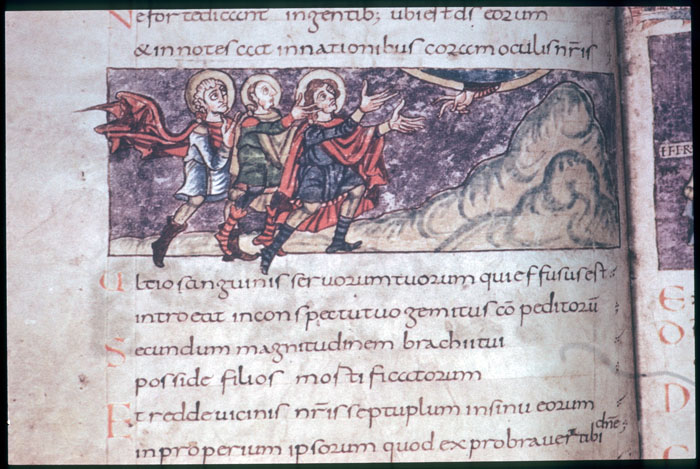 Nefor te dicant in gentib; ubi est ds eorum
& innotescat in nationibus coram oculis nr̄is
Ultio sanguinis servorum tuorum qui effusus est
introeat in conspectu tuo gemitus cō peditorū
Secundum magnitudinem brachii tui
posside filios mortificatorum
Et redde vicinis nr̄is septuplum in sinu eorum
in properium ipsorum quod exprobraver̄ tibi dn̄e
E
O
D